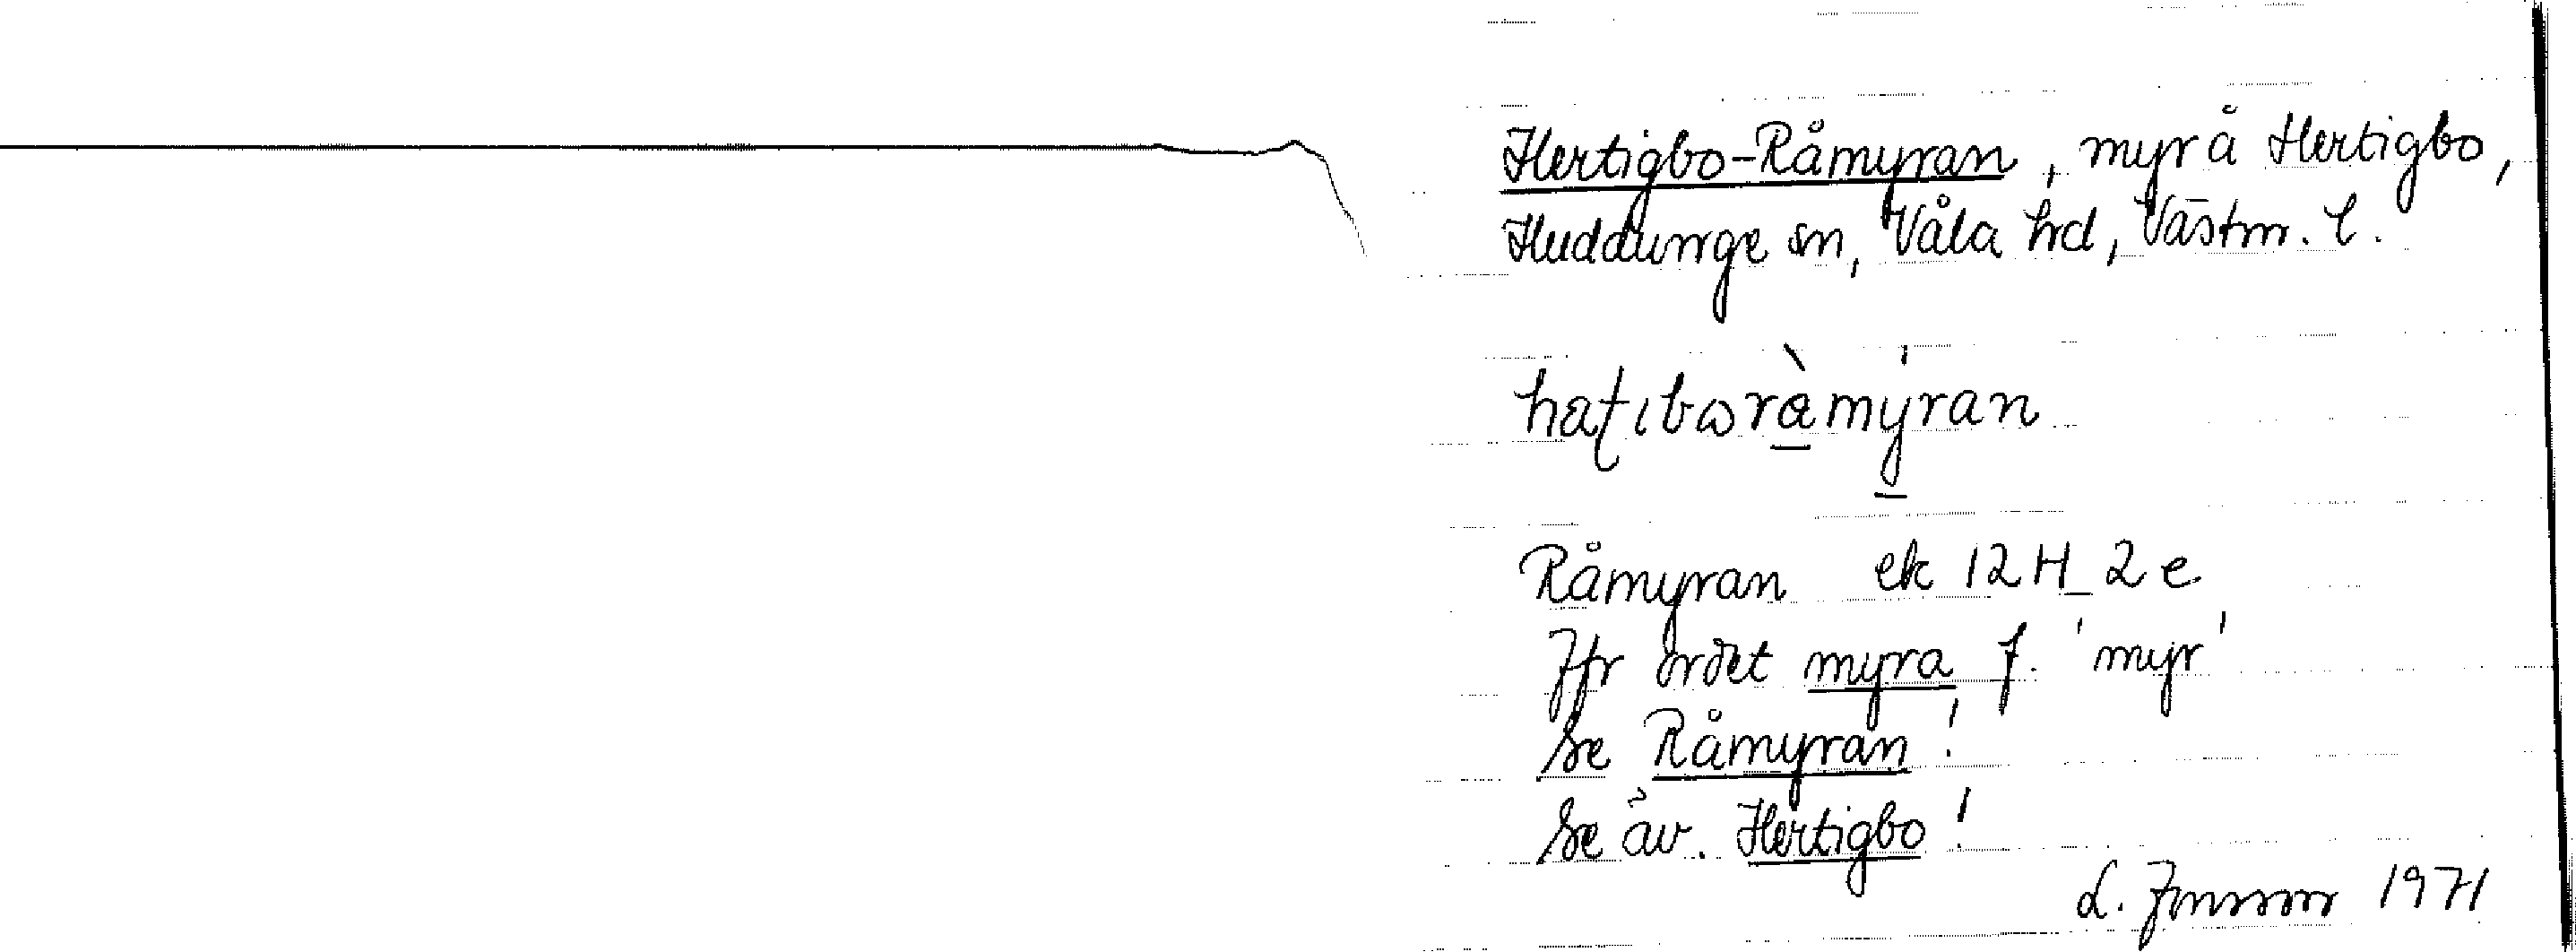 Hertigbo-Råmyran, myr å Hertigbo,
Huddunge sn, Våla hd, Västm. l.
hatıbωràmýran
Råmyran ek 12H 2e
Jfr ordet myra f. 'myr'
Se Råmyran!
Se äv. Hertigbo!
L. 1971